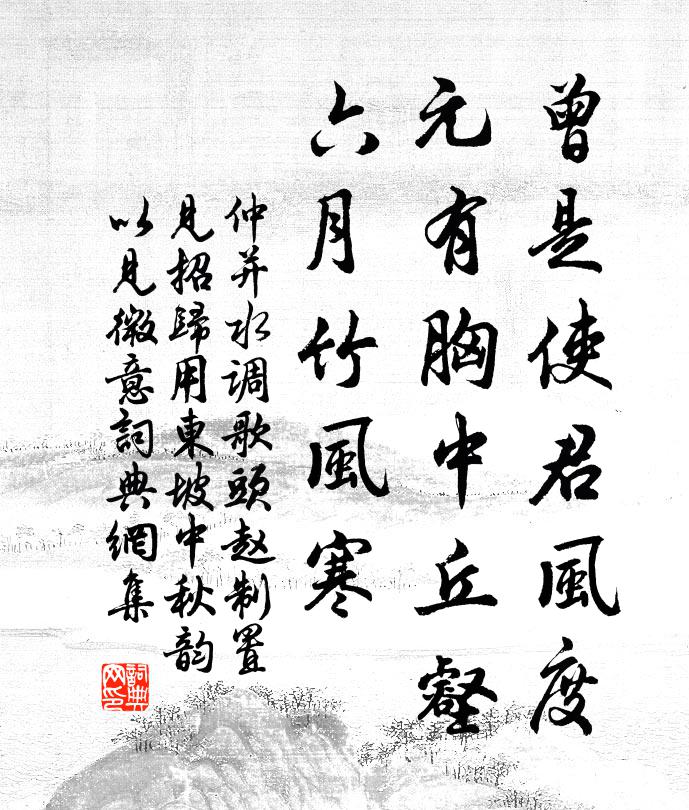 曾是使君風度
元有胸中丘壑
六月竹風寒
仲并水调歌頭赵制置
見招歸用東坡中秋韵
以見微意詞典網集
詞典網印